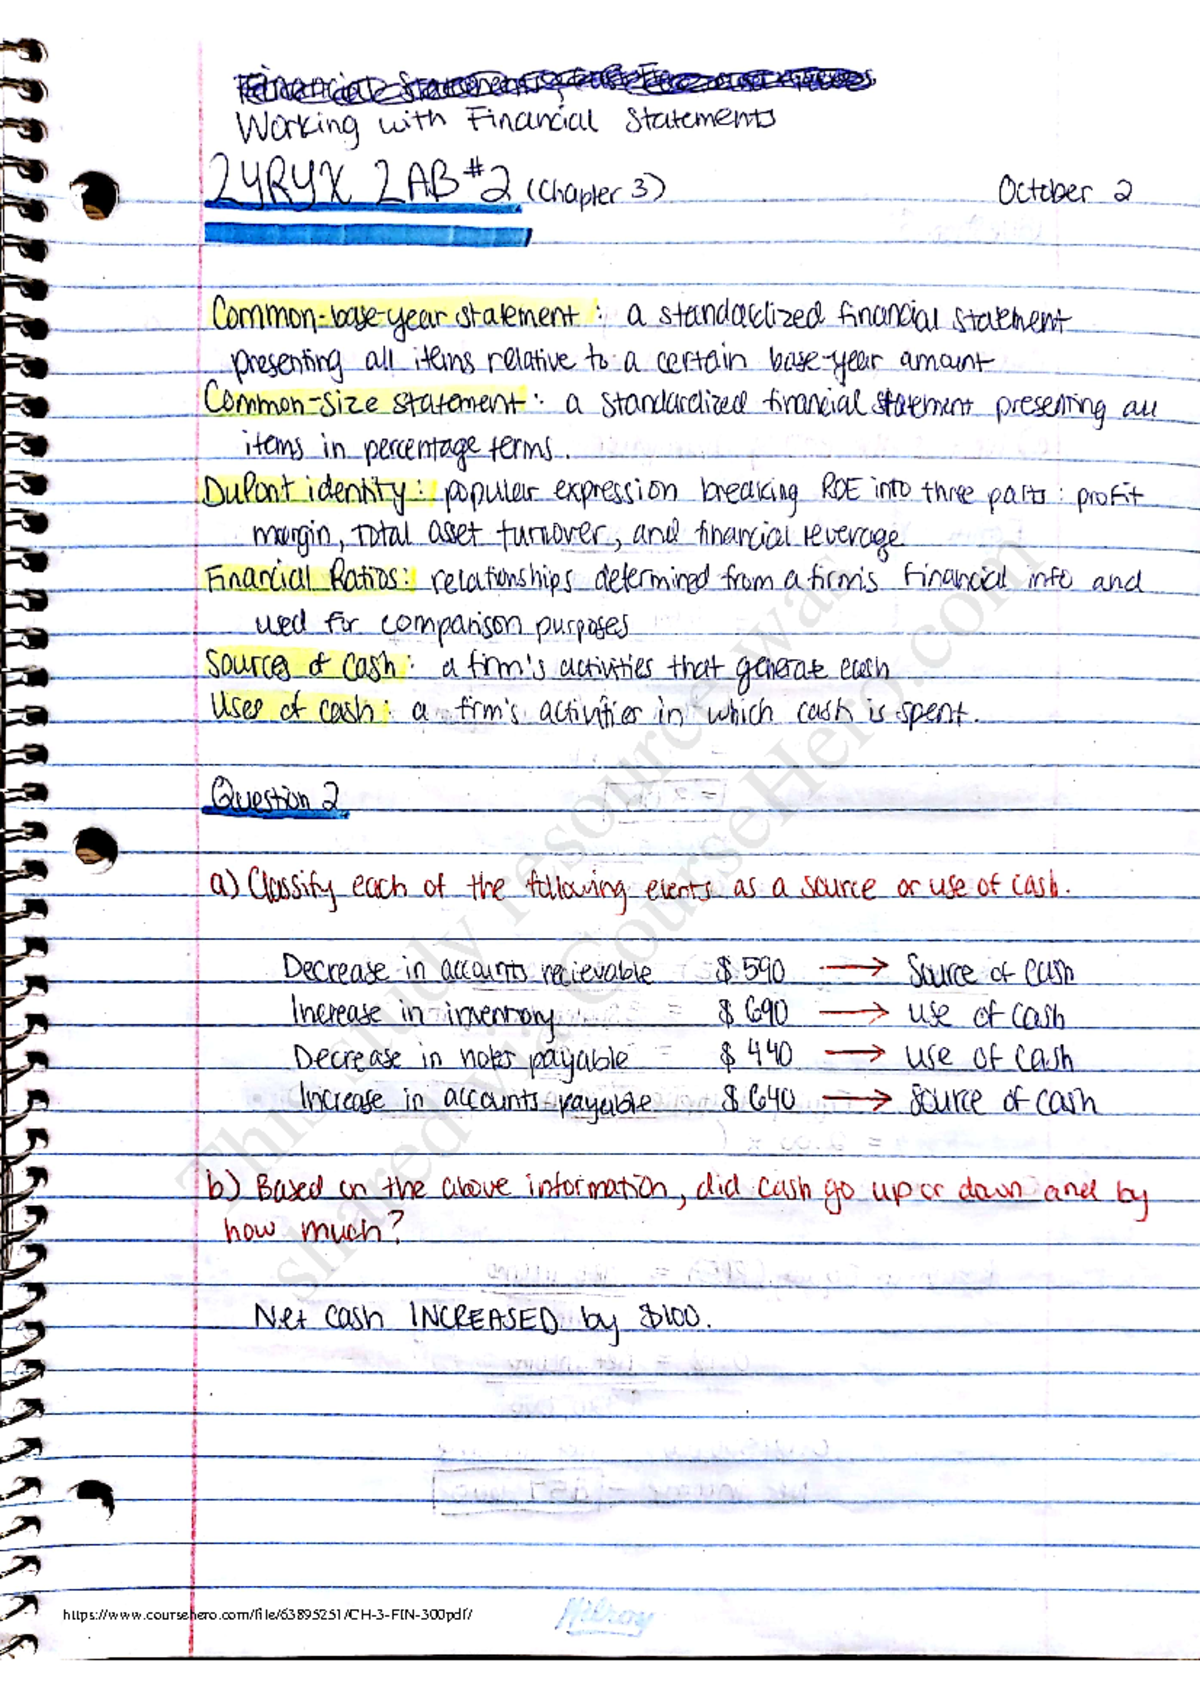 Working with Financial Statements
LYRYX LAB #2 (Chapter 3) October 2
Common-base-year statement: a standardized financial statement
presenting all items relative to a certain base-year amount
Common-size statement: a standardized financial statement presenting all
items in percentage terms.
DuPont identity: popular expression breaking ROE into three parts: profit
margin, total asset turnover, and financial leverage
Financial Ratios: relationships determined from a firm's financial info and
used for comparison purposes
Sources of cash: a firm's activities that generate cash
Uses of cash: a firm's activities in which cash is spent.
Question 2
a) Classify each of the following events as a source or use of cash.
Decrease in accounts recievable $590 → Source of cash
Increase in inventory $690 → use of cash
Decrease in notes payable $440 → use of cash
Increase in accounts payable $640 → source of cash
b) Based on the above information, did cash go up or down and by
how much?
Net cash INCREASED by $100.
This study resource was
shared via CourseHero.com
https://www.coursehero.com/file/63895251/CH-3-FIN-300pdf/
Hilroy